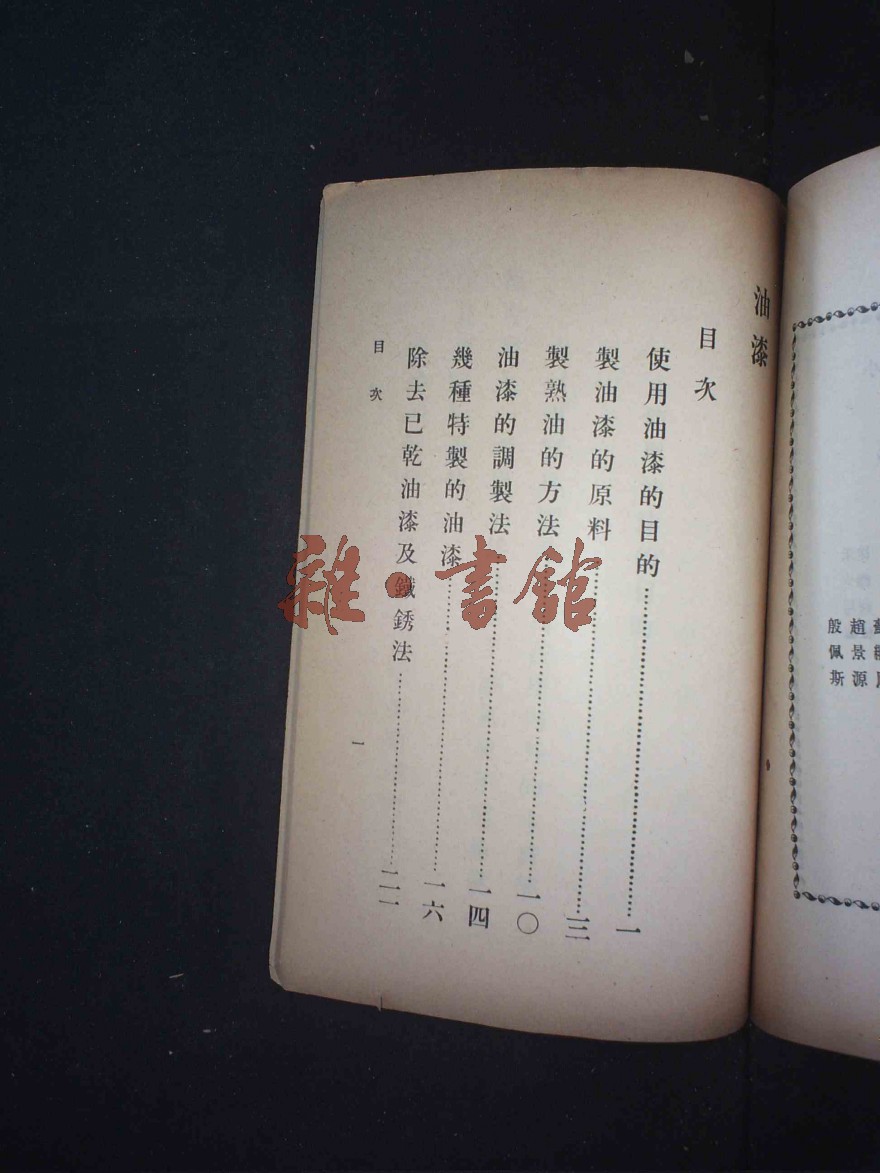 油漆
目次
使用油漆的目的……一
製油漆的原料……三
製熟油的方法……一〇
油漆的調製法……一四
幾種特製的油漆……一六
除去已乾油漆及鐵銹法……二一
目次
一
雜·書館
趙景源
殷佩斯